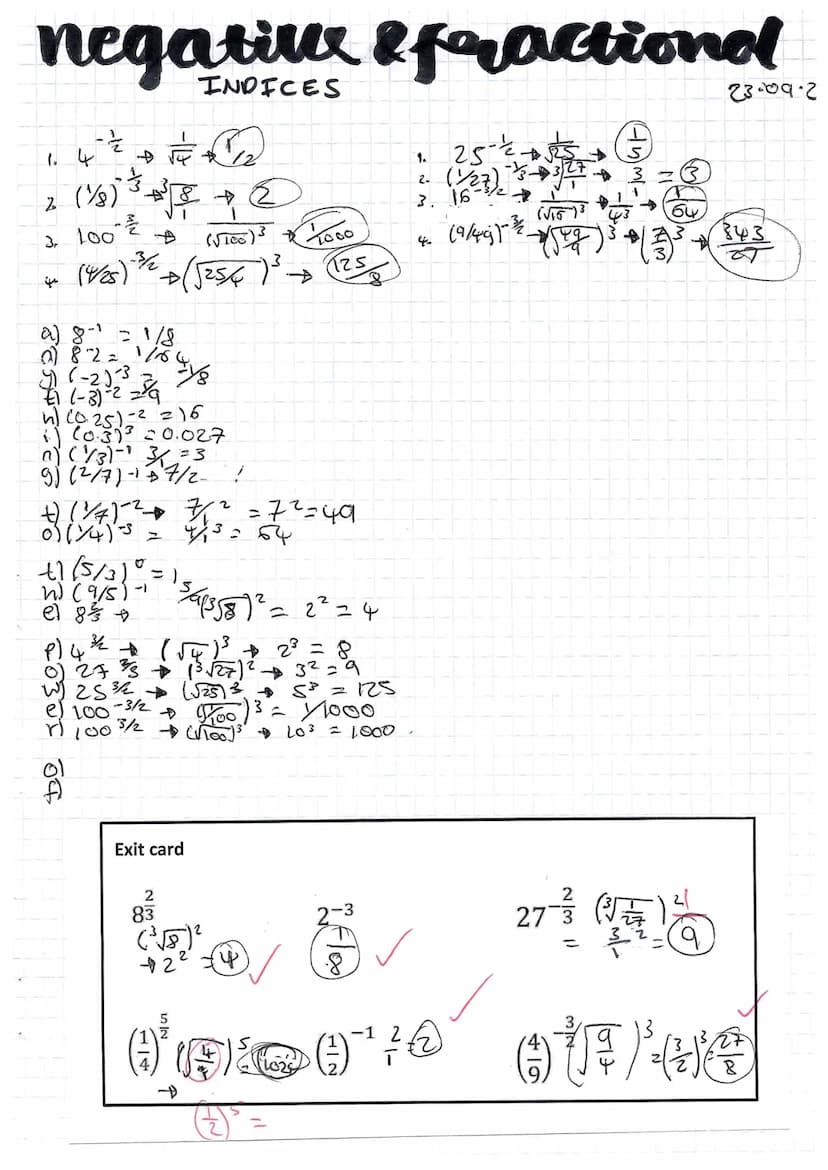 negative & fractional
INDICES
23.09.2
1. 4^-1/2 → 1/√4 → 1/2
2. (1/8)^-1/3 → ³√8/1 → 2
3. 100^-3/2 → 1/(√100)³ → 1/1000
4. (4/25)^-3/2 → (√25/4)³ → 125/8
1. 25^-1/2 → 1/√25 → 1/5
2. (1/27)^-1/3 → ³√27/1 → 3/1 = 3
3. 16^-3/2 → 1/(√16)³ → 1/4³ → 1/64
4. (9/49)^-3/2 → (√49/9)³ → (7/3)³ → 343/27
a) 8^-1 = 1/8
n) 8^-2 = 1/64
y) (-2)^-3 = -1/8
t) (-3)^-2 = 1/9
h) (0.25)^-2 = 16
i) (0.3)³ = 0.027
n) (1/3)^-1 3/1 = 3
g) (2/7)^-1 → 7/2
t) (1/7)^-2 → 7/1² = 7² = 49
o) (1/4)^-3 = 4/1³ = 64
t) (5/3)^0 = 1
h) (9/5)^-1 5/9
e) 8^2/3 → (³√8)² = 2² = 4
p) 4^3/2 → (√4)³ → 2³ = 8
o) 27^2/3 → (³√27)² → 3² = 9
w) 25^3/2 → (√25)³ → 5³ = 125
e) 100^-3/2 → (1/√100)³ = 1/1000
r) 100^3/2 → (√100)³ → 10³ = 1000
o)
f)
Exit card
8^2/3
(³√8)²
→ 2² = 4
2^-3
1/8
27^-2/3 (³√1/27)²
= 3/1² = 1/9
(1/4)^5/2 (√4/4)^5 = 1024
→
(1/2)^5 =
(1/2)^-1 2/1 = 2
(4/9)^-3/2 (√9/4)³ = (3/2)³ = 27/8